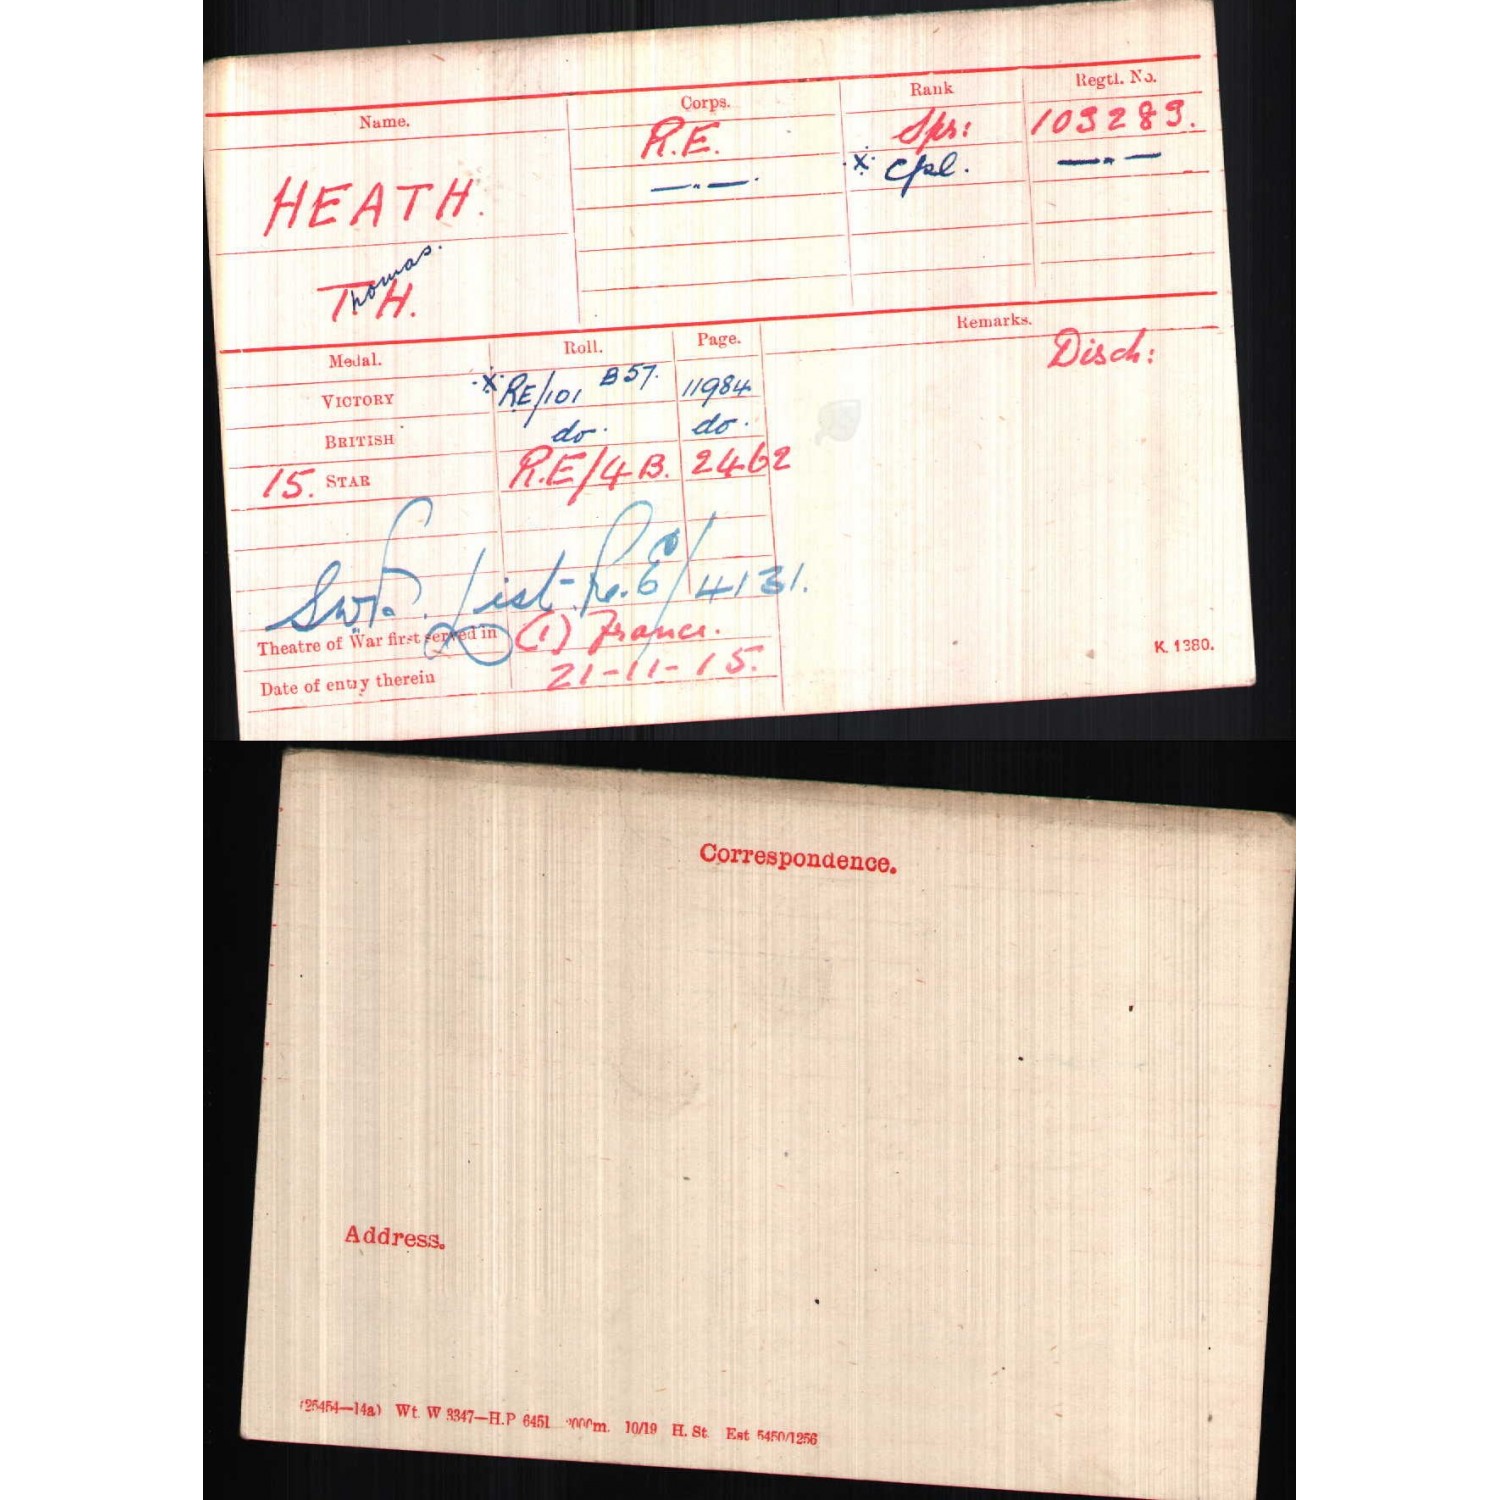 Name. Corps. Rank Regtl. No.
HEATH. R.E. Spr: 103283.
—„— ·x· Cpl. —„—
Thomas.
T. H.
Medal. Roll. Page. Remarks.
Disch:
VICTORY ·x· RE/101 B57. 11984
BRITISH do. do.
15. STAR R.E/4B. 2462
List R.E/4131.
Theatre of War first served in (1) France.
Date of entry therein 21-11-15.
K. 1380.
Correspondence.
Address.
(25454—14a) Wt. W 3347—H.P 6451 10/19 H. St. Est 5450/1256